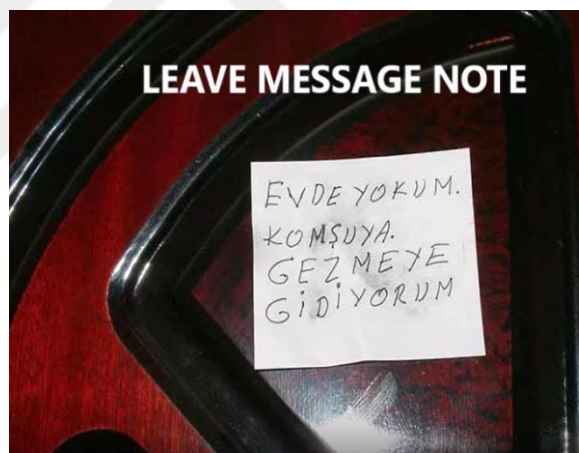 LEAVE MESSAGE NOTE
EVDE YOKUM.
KOMŞUYA.
GEZMEYE
GİDİYORUM